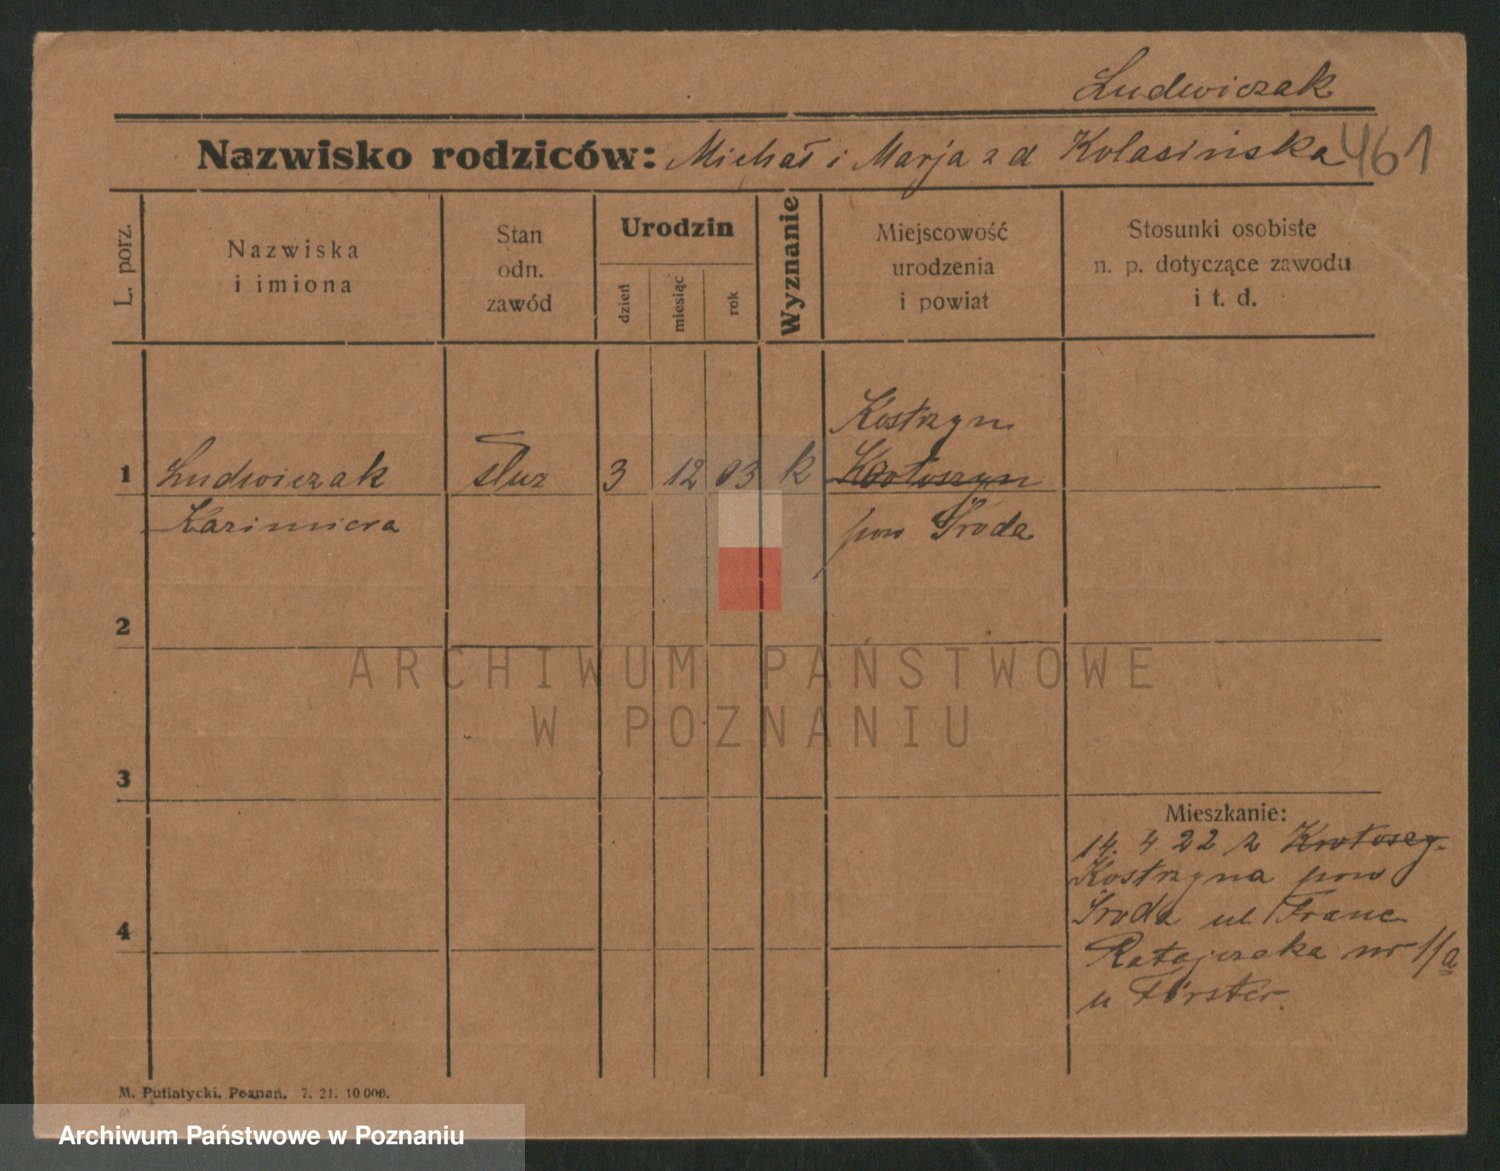 Ludwiczak
Nazwisko rodziców: Michał i Marja z d Kolasińska 461
L. porz.
Nazwiska
i imiona
Stan
odn.
zawód
Urodzin
dzień
miesiąc
rok
Wyznanie
Miejscowość
urodzenia
i powiat
Stosunki osobiste
n. p. dotyczące zawodu
i t. d.
Kostrzyn
1 Ludwiczak służ 3 12 03 k Krotoszyn
Kazimiera pow Środa
2
3
4
Mieszkanie:
14. 4 22 z Krotosz
Kostrzyna pow
Środa ul Franc
Ratajczaka nr 11a
u Förster.
ARCHIWUM PAŃSTWOWE
W POZNANIU
M. Putiatycki, Poznań. 7. 21. 10 000.
Archiwum Państwowe w Poznaniu